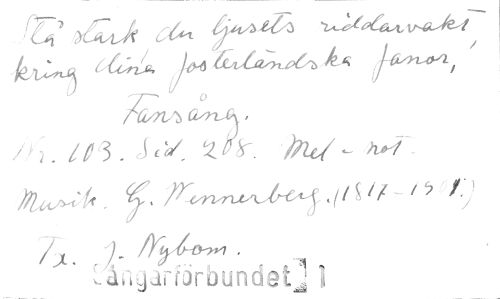 Stå stark, du ljusets riddarvakt
kring dina fosterländska fanor,
Fansång.
Nr. 103. Sid. 208. Mel-not.
Musik. G. Wennerberg. (1817-1901.)
Tx. J. Nybom.
Sångarförbundet 1